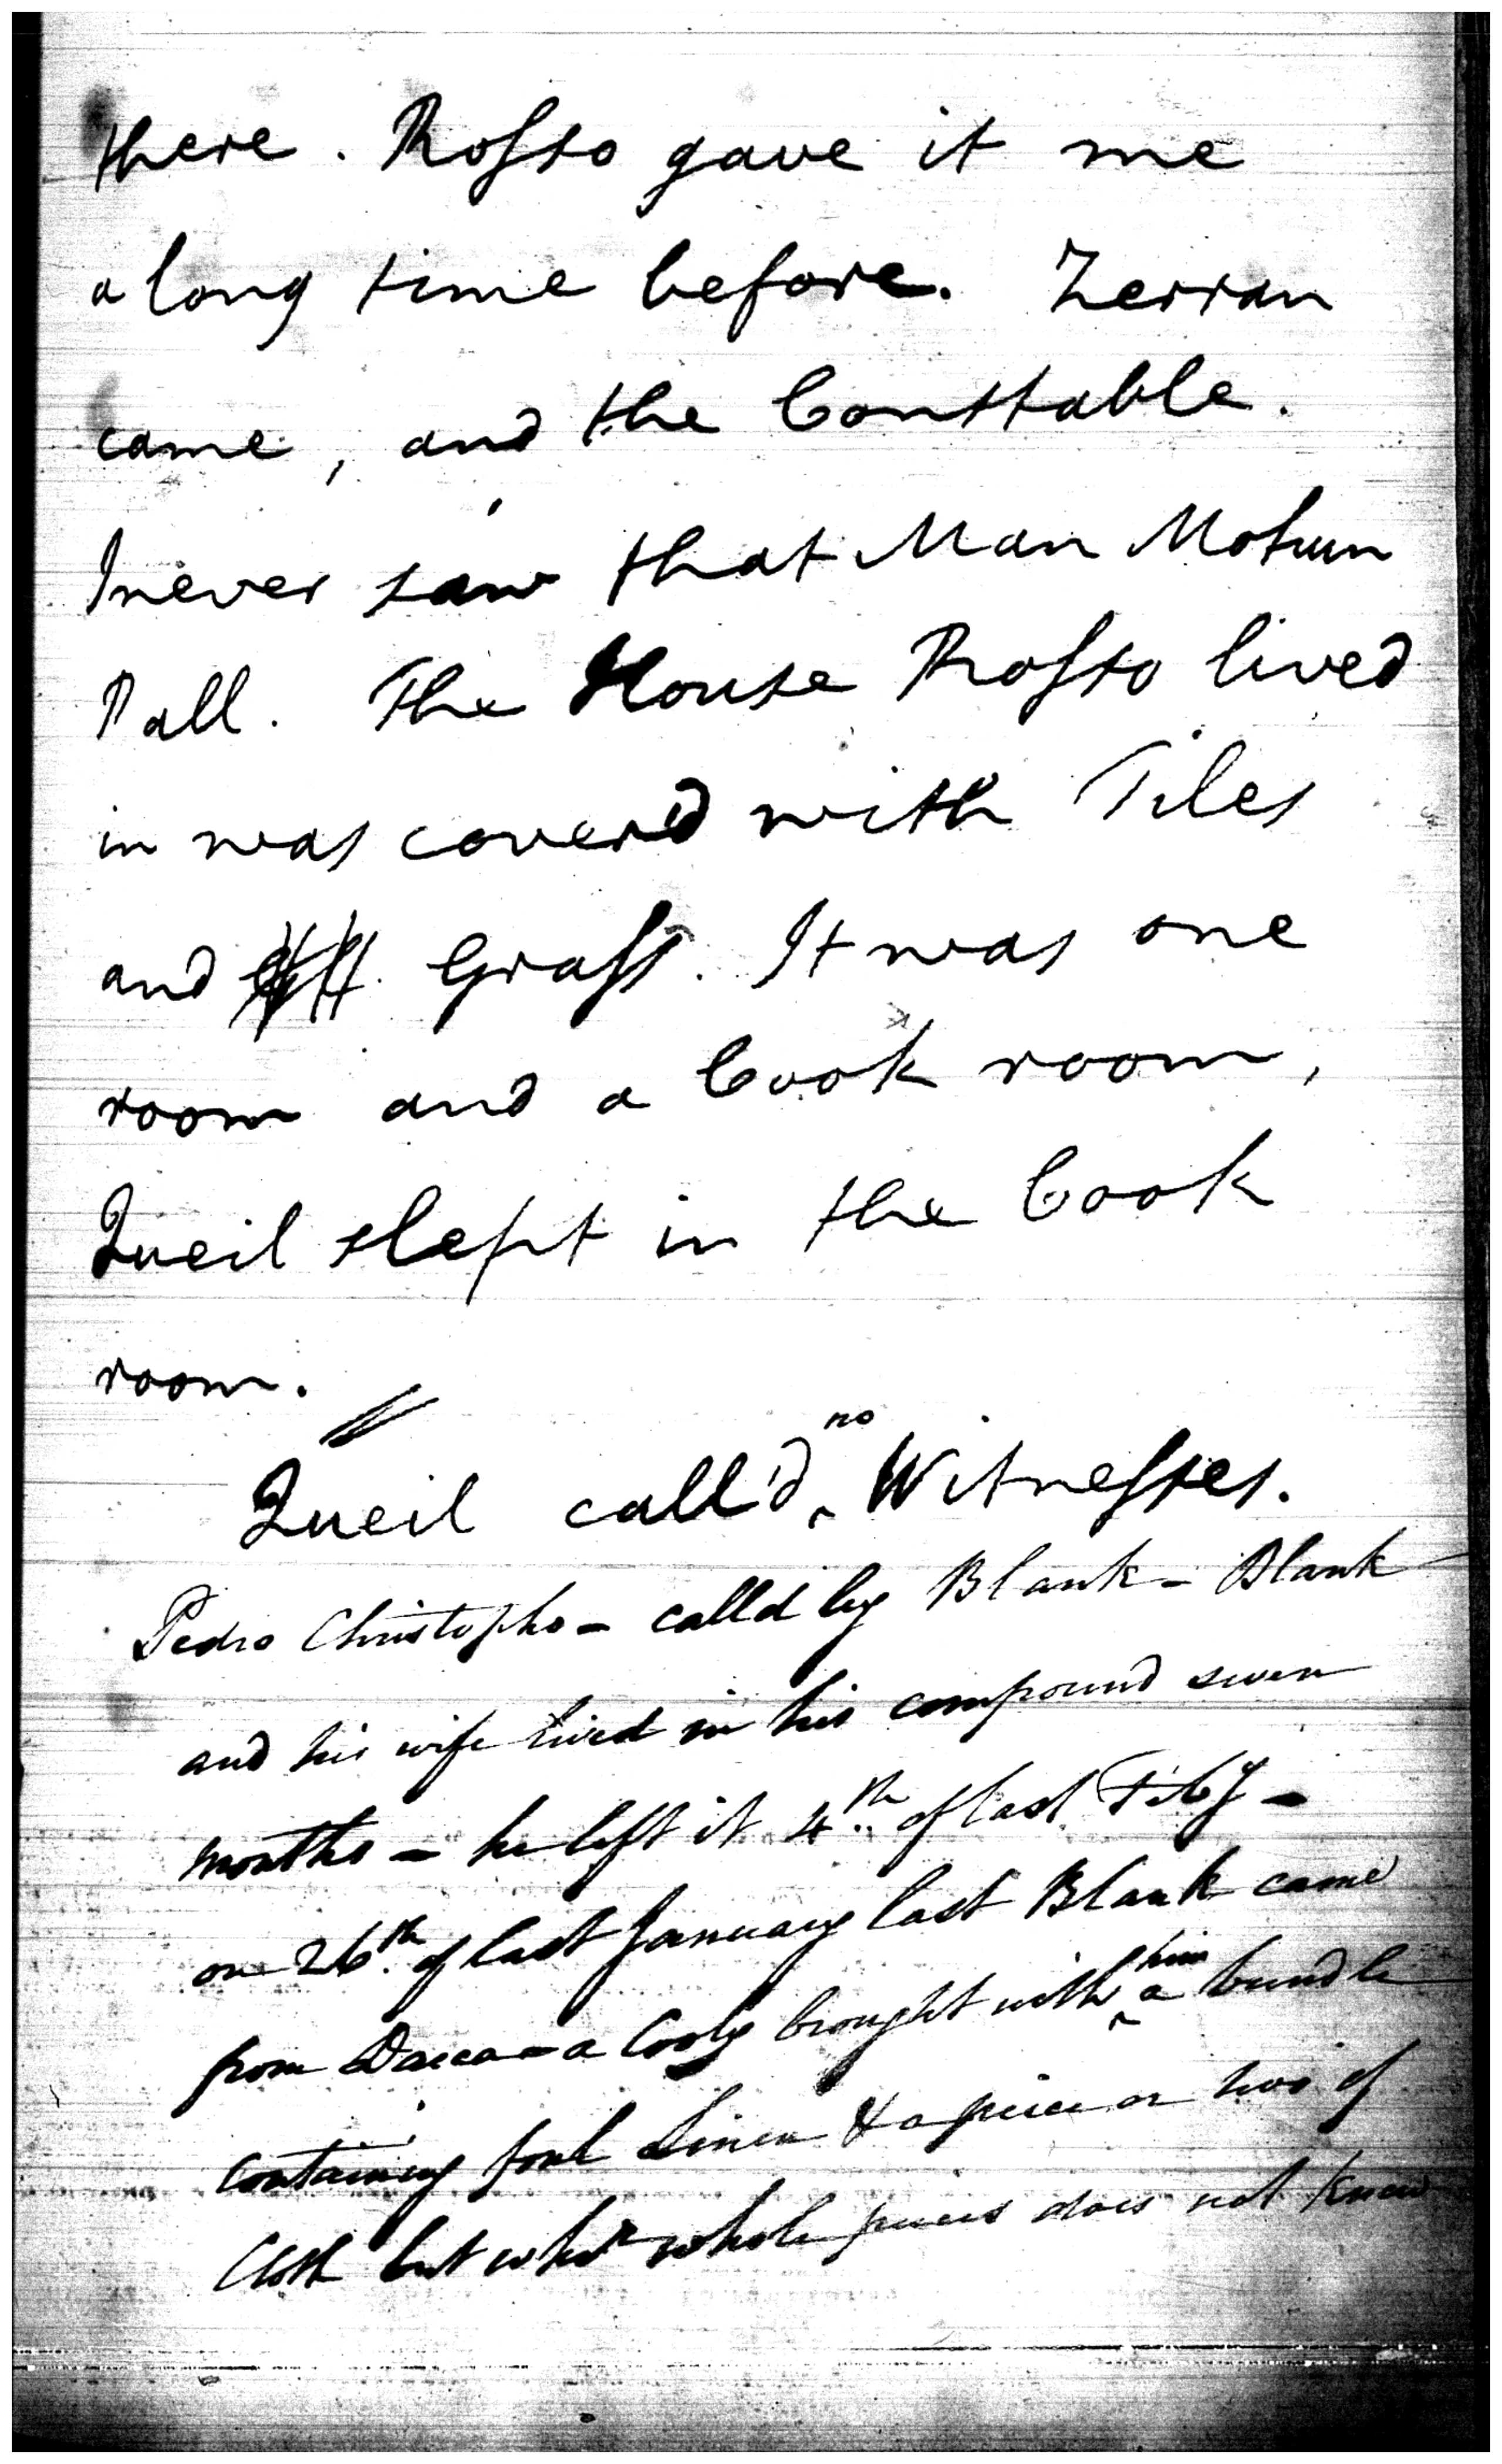 there. Rosso gave it me
a long time before. Zerran
came, and the Constable.
I never saw that Man Mohun
Pall. The House Rosso lived
in was cover'd with Tiles
and Grass. It was one
room and a Cook room,
Queil slept in the Cook
room.
Queil call'd no Witnesses.
Pedro Christopho - calld by Blank - Blank
and his wife lived in his compound seven
months - he left it 4th of last Feby -
on 26th of last January last Blank came
from Dacca - a Cooly brought with him a bundle
containing foul Linen & a piece or two of
Cloth but whr whole pieces does not know